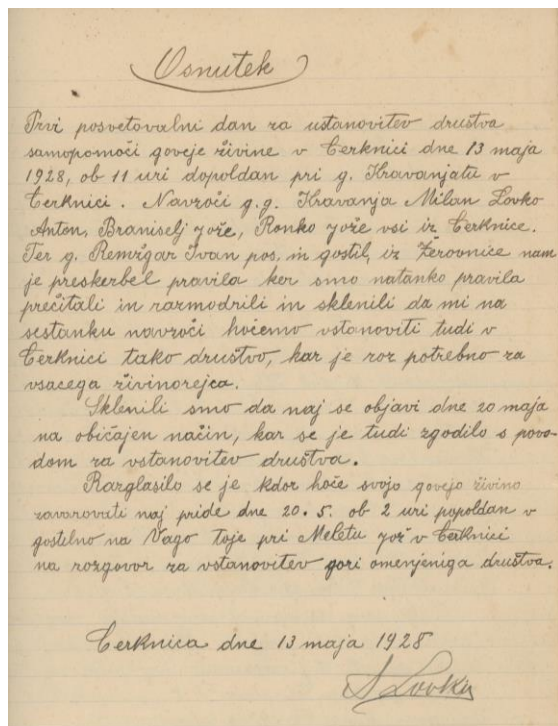 Osnutek
Prvi posvetovalni dan za ustanovitev društva
samopomoči goveje živine v Cerknici dne 13 maja
1928, ob 11 uri dopoldan pri g. Kravanjatu v
Cerknici. Navzoči g.g. Kravanja Milan Lovko
Anton, Braniselj Jože, Ronko Jože vsi iz Cerknice.
Ter g. Remžgar Ivan pos. in gostil, iz Žerovnice nam
je preskerbel pravila ker smo natanko pravila
prečitali in razmodrili in sklenili da mi na
sestanku navzoči hočemo vstanoviti tudi v
Cerknici tako društvo, kar je zoz potrebno za
vsacega živinorejca.
Sklenili smo da naj se objavi dne 20 maja
na običajen način, kar se je tudi zgodilo s povo-
dom za vstanovitev društva.
Razglasilo se je kdor hoče svojo govejo živino
zavarovati naj pride dne 20. 5. ob 2 uri popoldan v
gostilno na Vago toje pri Meletu Jož v Cerknici
na rozgovor za vstanovitev gori omenjeniga društva.
Cerknica dne 13 maja 1928
A Lovko